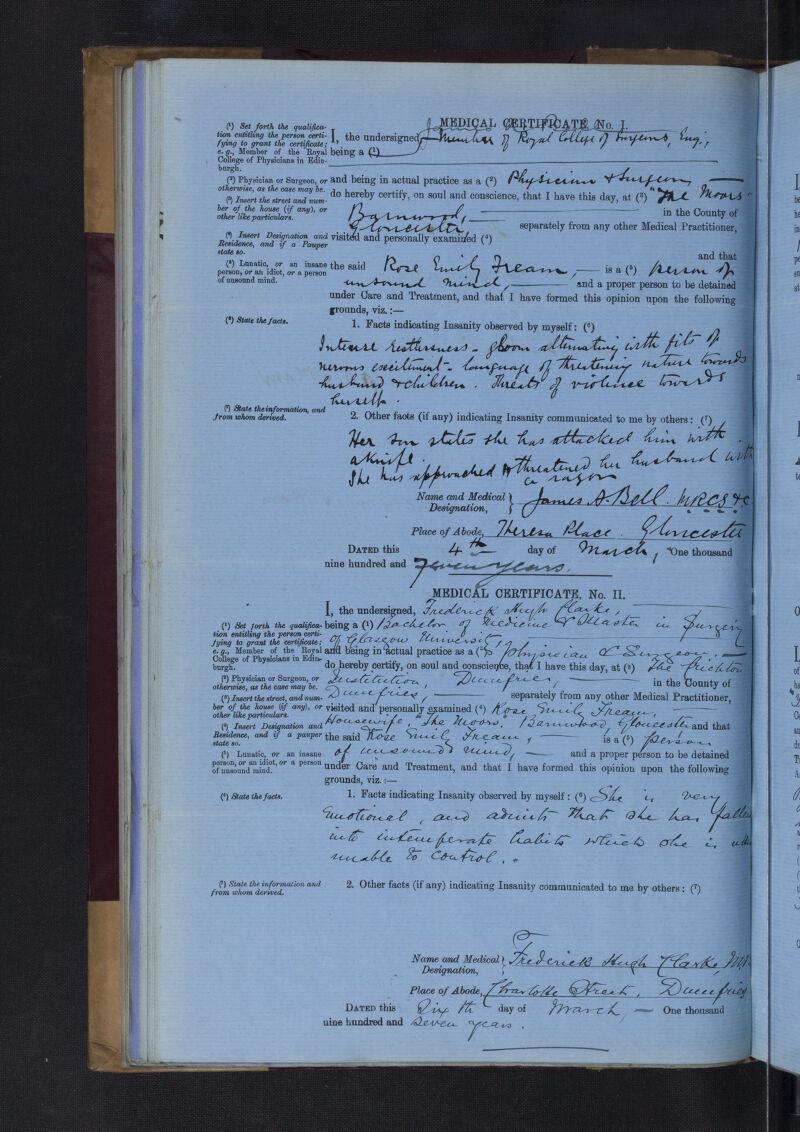 MEDICAL CERTIFICATE, No. I.
(¹) Set forth the qualifica-
tion entitling the person certi-
fying to grant the certificate;
e. g., Member of the Royal
College of Physicians in Edin-
burgh.
I, the undersigned, Member of Royal College of Surgeons, Eng.,
being a (¹)
(²) Physician or Surgeon, or
otherwise, as the case may be.
and being in actual practice as a (²) Physician & Surgeon
(³) Insert the street and num-
ber of the house (if any), or
other like particulars.
do hereby certify, on soul and conscience, that I have this day, at (³) "The Moors"
Barnwood, in the County of
Gloucester, separately from any other Medical Practitioner,
(⁴) Insert Designation and
Residence, and if a Pauper
state so.
visited and personally examined (⁴)
and that
(⁵) Lunatic, or an insane
person, or an idiot, or a person
of unsound mind.
the said Rose Emily Fream, is a (⁵) person of
unsound mind, and a proper person to be detained
under Care and Treatment, and that I have formed this opinion upon the following
grounds, viz. :—
(⁶) State the facts.
1. Facts indicating Insanity observed by myself: (⁶)
Intense restlessness - gloom alternating with fits of
nervous excitement - language of threatening nature towards
husband & children. Threats of violence towards
herself.
(⁷) State the information, and
from whom derived.
2. Other facts (if any) indicating Insanity communicated to me by others: (⁷)
Her son states she has attacked him with
a knife.
She has approached & threatened her husband with
a razor
Name and Medical
Designation,
James A. Bell. M.R.C.S.
Place of Abode, Theresa Place. Gloucester
DATED this 4th day of March, One thousand
nine hundred and Seven years.
MEDICAL CERTIFICATE, No. II.
I, the undersigned, Frederick Hugh Clarke,
(¹) Set forth the qualifica-
tion entitling the person certi-
fying to grant the certificate;
e. g., Member of the Royal
College of Physicians in Edin-
burgh.
being a (¹) Bachelor of Medicine & Master in Surgery
of Glasgow University,
and being in actual practice as a (²) Physician & Surgeon,
do hereby certify, on soul and conscience, that I have this day, at (³) The Crichton
(²) Physician or Surgeon, or
otherwise, as the case may be.
Institution, Dumfries, in the County of
(³) Insert the street, and num-
ber of the house (if any), or
other like particulars.
Dumfries, separately from any other Medical Practitioner,
visited and personally examined (⁴) Rose Emily Fream,
(⁴) Insert Designation and
Residence, and if a pauper
state so.
Housewife, "The Moors," Barnwood, Gloucester and that
the said Rose Emily Fream, is a (⁵) person
(⁵) Lunatic, or an insane
person, or an idiot, or a person
of unsound mind.
of unsound mind, and a proper person to be detained
under Care and Treatment, and that I have formed this opinion upon the following
grounds, viz. :—
(⁶) State the facts.
1. Facts indicating Insanity observed by myself: (⁶) She is very
emotional, and admits that she has fallen
into intemperate habits which she is
unable to control.
(⁷) State the information and
from whom derived.
2. Other facts (if any) indicating Insanity communicated to me by others: (⁷)
Name and Medical
Designation,
Frederick Hugh Clarke,
Place of Abode, Charlotte Street, Dumfries
DATED this Sixth day of March, One thousand
nine hundred and Seven years.